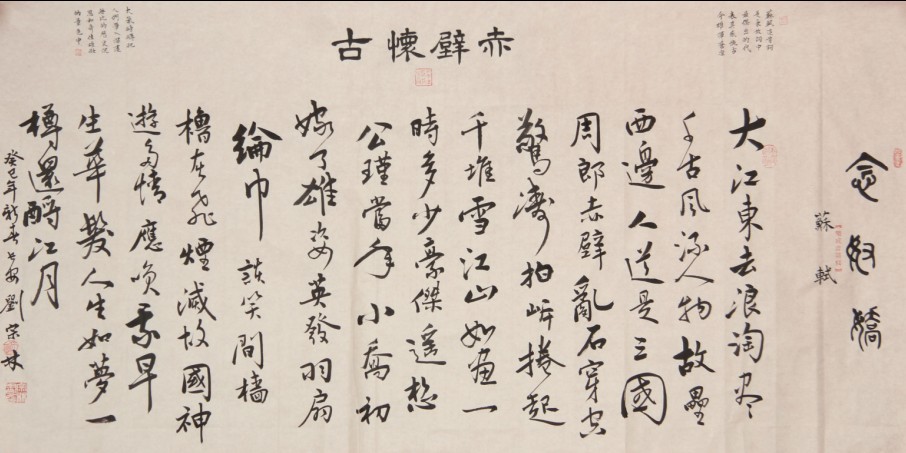 念奴嬌
蘇軾
赤壁懷古
大江東去浪淘盡
千古風流人物故壘
西邊人道是三國
周郎赤壁亂石穿空
驚濤拍岸捲起
千堆雪江山如畫一
時多少豪傑遙想
公瑾當年小喬初
嫁了雄姿英發羽扇
綸巾談笑間檣
櫓灰飛煙滅故國神
遊多情應笑我早
生華髮人生如夢一
樽還酹江月
癸巳年新春長安劉宗林